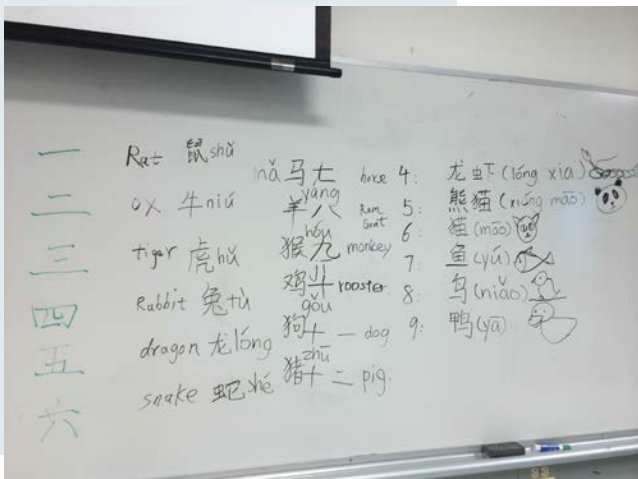 一 Rat 鼠 shǔ
二 ox 牛 niú
三 tiger 虎 hǔ
四 Rabbit 兔 tù
五 dragon 龙 lóng
六 snake 蛇 shé
mǎ 马 七 horse
yáng
羊 八 Ram Goat
hóu
猴 九 monkey
鸡 十 rooster
gǒu
狗 十一 dog
zhū
猪 十二 pig.
4: 龙虾 (lóng xiā)
5: 熊猫 (xióng māo)
6: 猫 (māo)
7: 鱼 (yú)
8: 鸟 (niǎo)
9: 鸭 (yā)